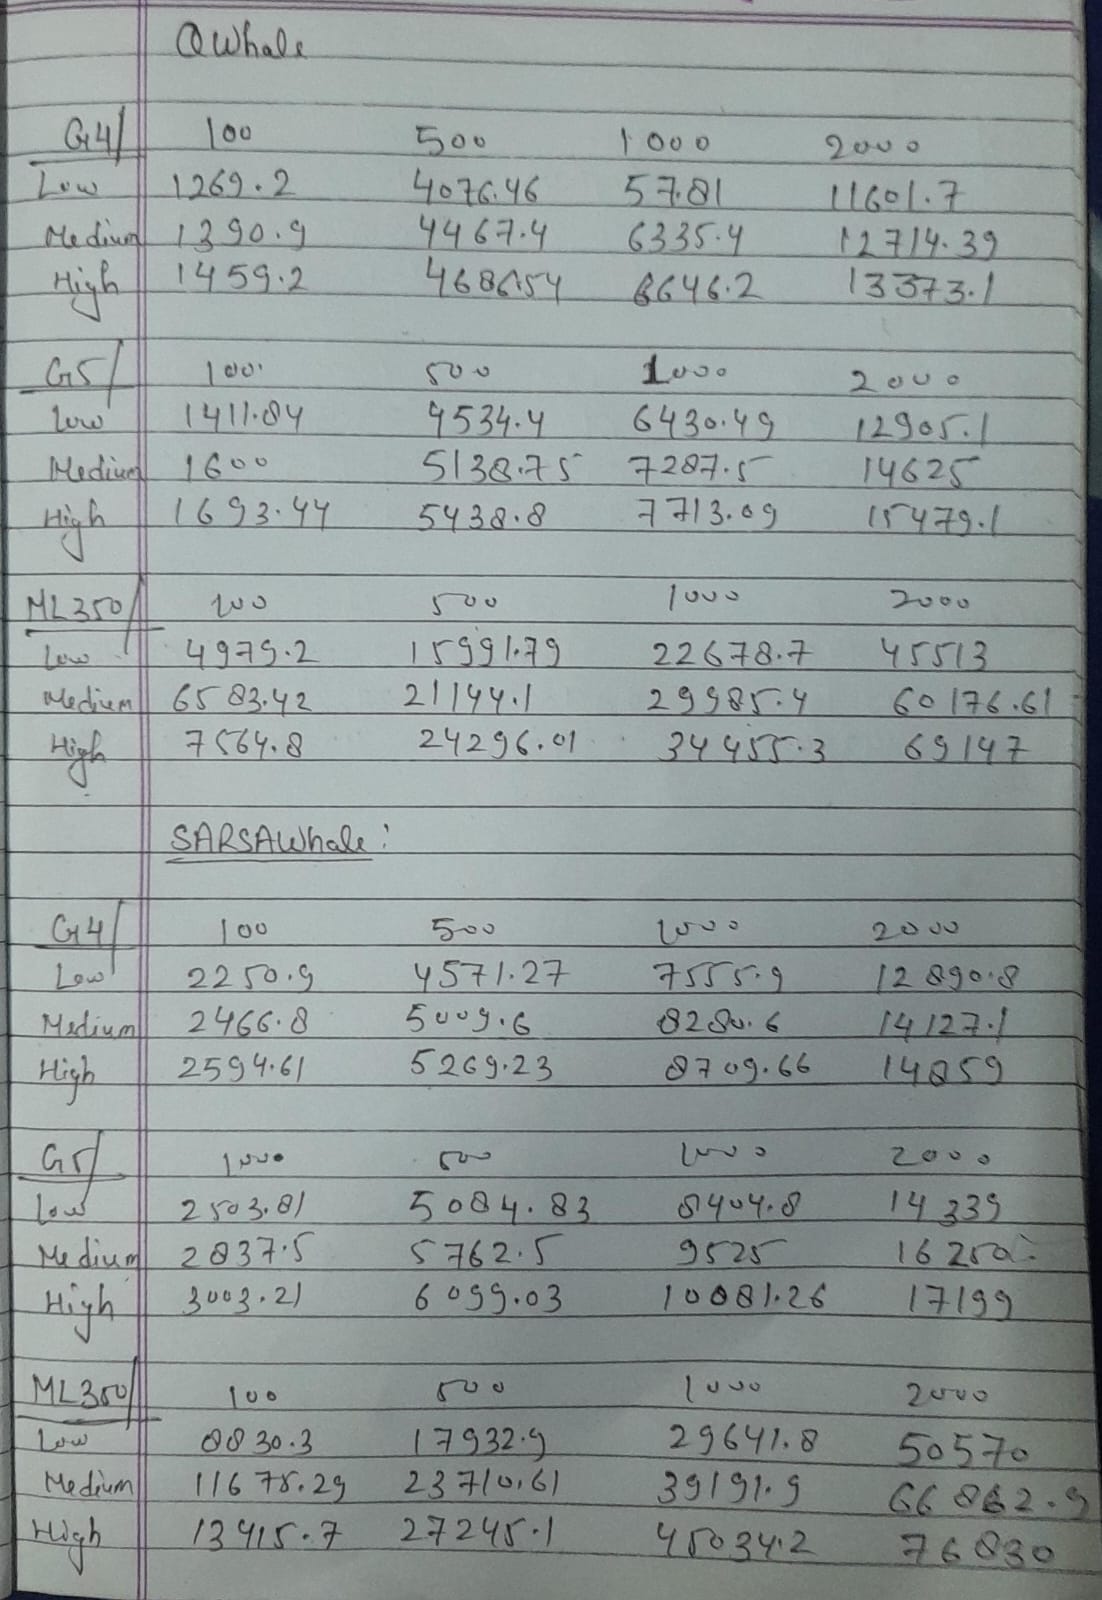 QWhale
G4/ 100 500 1000 2000
Low 1269.2 4076.46 57.81 11601.7
Medium 1390.9 4467.4 6335.4 12714.39
High 1459.2 4686.54 6646.2 13373.1
G5/ 100 500 1000 2000
Low 1411.84 4534.4 6430.49 12905.1
Medium 1600 5138.75 7287.5 14625
High 1693.44 5438.8 7713.09 15479.1
ML350/ 100 500 1000 2000
Low 4979.2 15991.79 22678.7 45513
Medium 6583.42 21144.1 29985.4 60176.61
High 7564.8 24296.01 34455.3 69147
SARSAWhale:
G4/ 100 500 1000 2000
Low 2250.9 4571.27 7555.9 12890.8
Medium 2466.8 5009.6 8280.6 14127.1
High 2594.61 5269.23 8709.66 14859
G5/ 1000 500 1000 2000
Low 2503.81 5084.83 8404.8 14339
Medium 2837.5 5762.5 9525 16250
High 3003.21 6099.03 10081.26 17199
ML350/ 100 500 1000 2000
Low 8830.3 17932.9 29641.8 50570
Medium 11675.29 23710.61 39191.9 66862.9
High 13415.7 27245.1 45034.2 76830